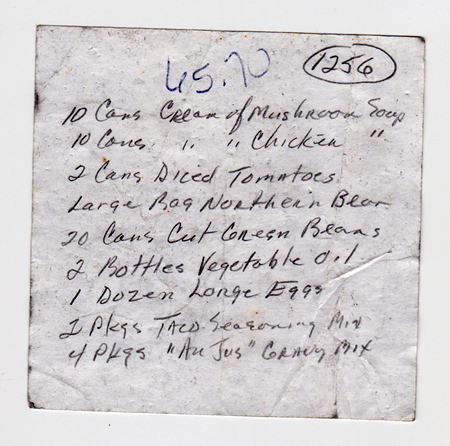 65.70 1256
10 Cans Cream of Mushroom Soup
10 Cans " " Chicken "
2 Cans Diced Tomatoes
Large Bag Northern Bean
20 Cans Cut Green Beans
2 Bottles Vegetable Oil
1 Dozen Large Eggs
2 Pkgs Taco Seasoning Mix
4 Pkgs "Au Jus" Gravy Mix